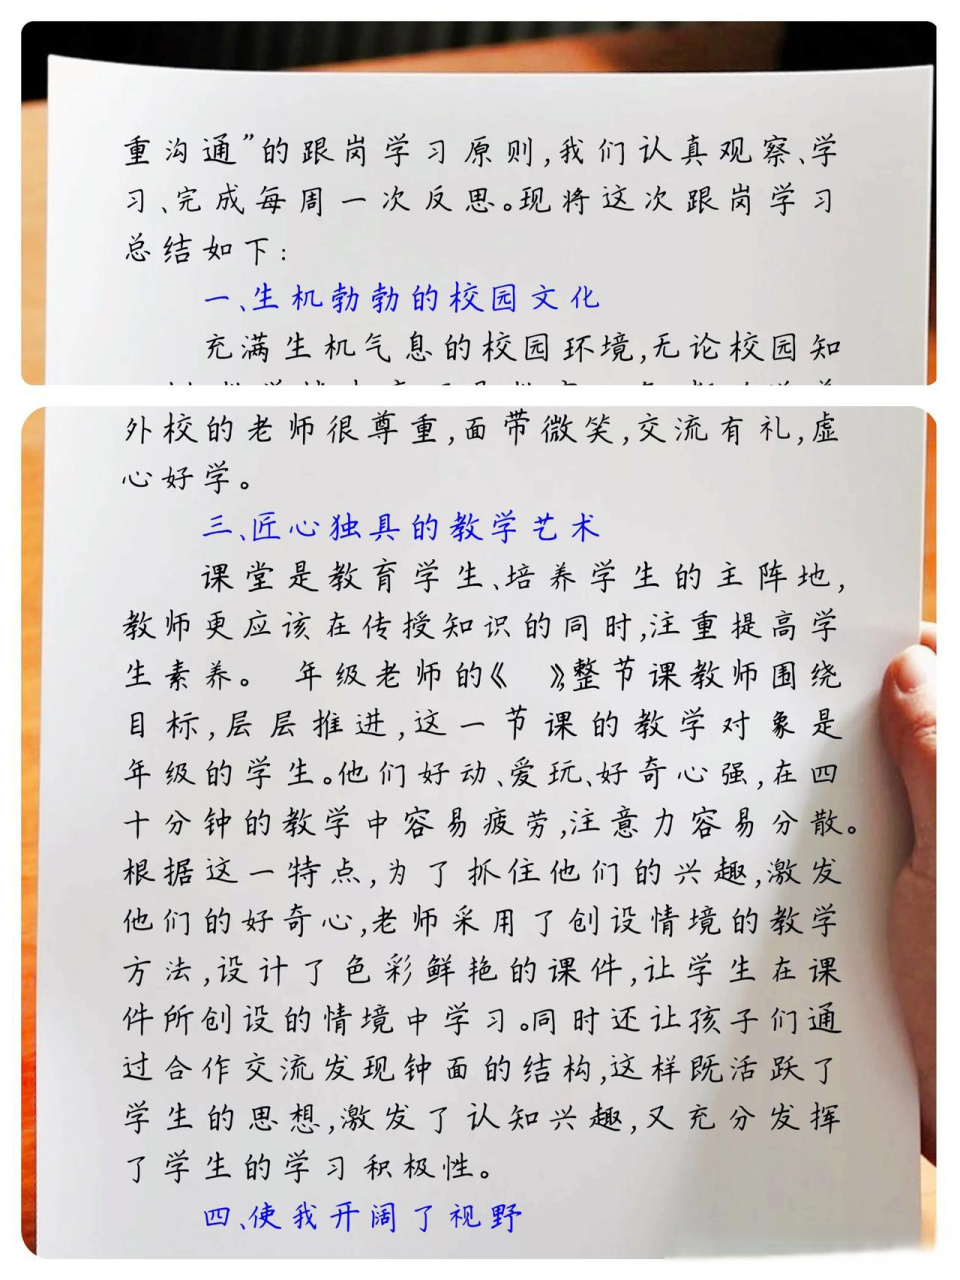 重沟通”的跟岗学习原则,我们认真观察、学
习、完成每周一次反思。现将这次跟岗学习
总结如下:
一、生机勃勃的校园文化
充满生机气息的校园环境,无论校园知
外校的老师很尊重,面带微笑,交流有礼,虚
心好学。
三、匠心独具的教学艺术
课堂是教育学生、培养学生的主阵地,
教师更应该在传授知识的同时,注重提高学
生素养。 年级老师的《 》,整节课教师围绕
目标,层层推进,这一节课的教学对象是
年级的学生。他们好动、爱玩、好奇心强,在四
十分钟的教学中容易疲劳,注意力容易分散。
根据这一特点,为了抓住他们的兴趣,激发
他们的好奇心,老师采用了创设情境的教学
方法,设计了色彩鲜艳的课件,让学生在课
件所创设的情境中学习。同时还让孩子们通
过合作交流发现钟面的结构,这样既活跃了
学生的思想,激发了认知兴趣,又充分发挥
了学生的学习积极性。
四、使我开阔了视野